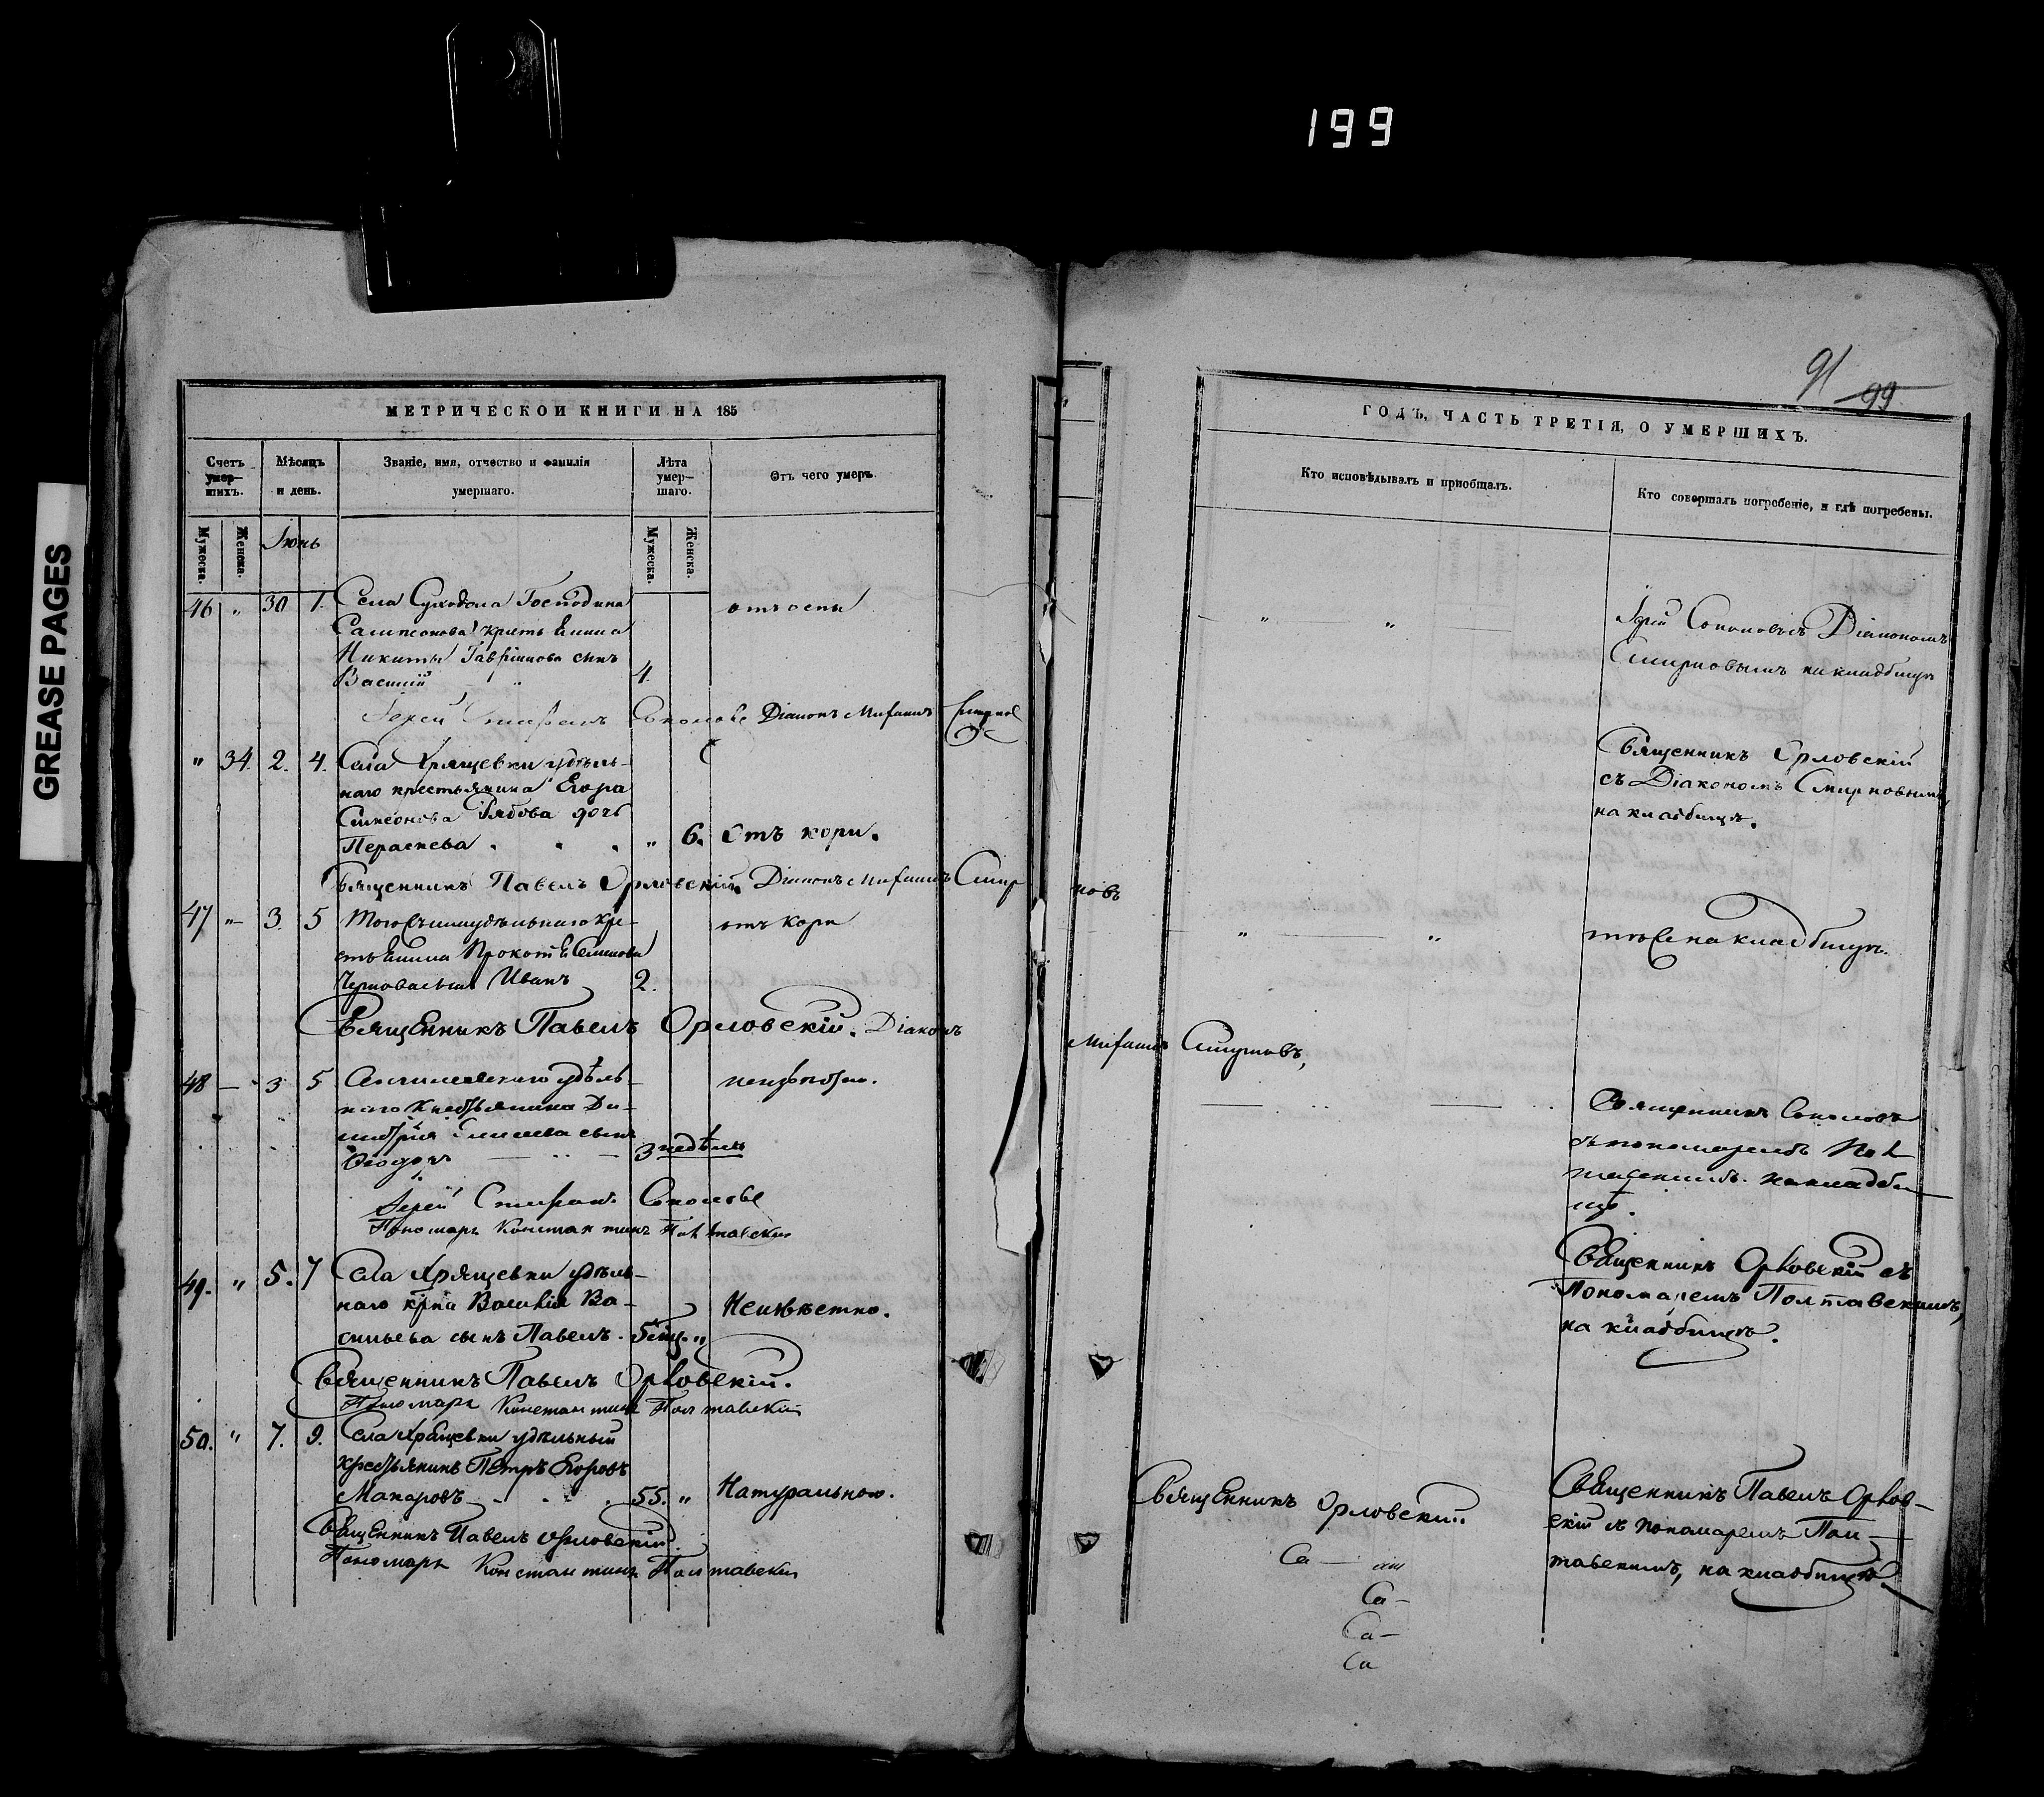 199
GREASE PAGES
91
99
МЕТРИЧЕСКОЙ КНИГИ НА 185
Счетъ умер-шихъ.
Мѣсяцъ и день.
Званіе, имя, отчество и фамилія умершаго.
Лѣта умер-шаго.
Отъ чего умеръ.
Мужеска.
Женска.
Іюнь
Мужеска.
Женска.
46 " 30 1. Села Суходола Господина
отъ оспы
Сампсонова крестьянина
Никиты Гаврилова сынъ
Василій " 4.
Іерей Стефанъ Соколовъ Діаконъ Смирновъ
" 34. 2. 4. Села Хрящевки удѣль-
наго крестьянина Егора
Симеонова Рябова дочь
Параскева . . . " 6. Отъ кори.
Священникъ Павелъ Орловскій Діаконъ Смир новъ
47 " 3. 5 удѣльнаго кре-
отъ кори
Иванъ 2.
Священникъ Павелъ Орловскій. Діаконъ Смирновъ,
48 — " 3 5 удѣль-
наго крестьянина Ди-
митрія сынъ
Ѳеодоръ — " — 3 недѣли
Іерей Стефанъ Соколовъ
Пономарь Константинъ Полтавскій
49. " 5. 7 Села Хрящевки удѣль-
наго кр-на Василія Ва-
Неизвѣстно.
сильева сынъ Павелъ. 5 мѣц. "
Священникъ Павелъ Орловскій.
Пономарь Константинъ Полтавскій
50. " 7. 9. Села Хрящевки удѣльный
крестьянинъ Петръ Егоровъ
Макаровъ . . . 55. " Натурально.
Священникъ Павелъ Орловскій.
Пономарь Константинъ Полтавскій
ГОДЪ, ЧАСТЬ ТРЕТІЯ, О УМЕРШИХЪ.
Кто исповѣдывалъ и пріобщалъ.
Кто совершалъ погребеніе, и гдѣ погребены.
" "
Іерей Соколовъ съ Діакономъ
Смирновымъ на кладбищѣ
Священникъ Орловскій
съ Діакономъ Смирновымъ,
на кладбищѣ.
" "
тѣ же на кладбищѣ.
Священникъ Соколовъ
съ пономаремъ Пол-
тавскимъ на кладби-
щѣ.
Священникъ Орловскій съ
Пономаремъ Полтавскимъ,
на кладбищѣ.
Священникъ Орловскій.
Священникъ Павелъ Орлов-
скій съ пономаремъ Пол-
тавскимъ, на кладбищѣ.
Са —
Са —
Са —
Са